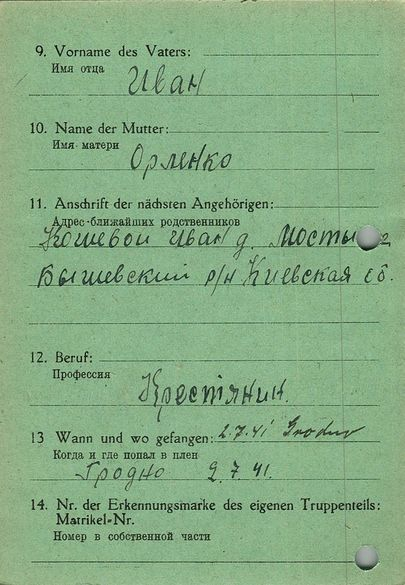 9. Vorname des Vaters:
Имя отца
Иван
10. Name der Mutter:
Имя матери
Орленко
11. Anschrift der nächsten Angehörigen:
Адрес ближайших родственников
Кошевой Иван д. Мосты
Бышевский р/н Киевская об.
12. Beruf:
Профессия
Крестянин.
13 Wann und wo gefangen: 2.7.41 Grodno
Когда и где попал в плен
Гродно 2.7.41.
14. Nr. der Erkennungsmarke des eigenen Truppenteils:
Matrikel-Nr.
Номер в собственной части